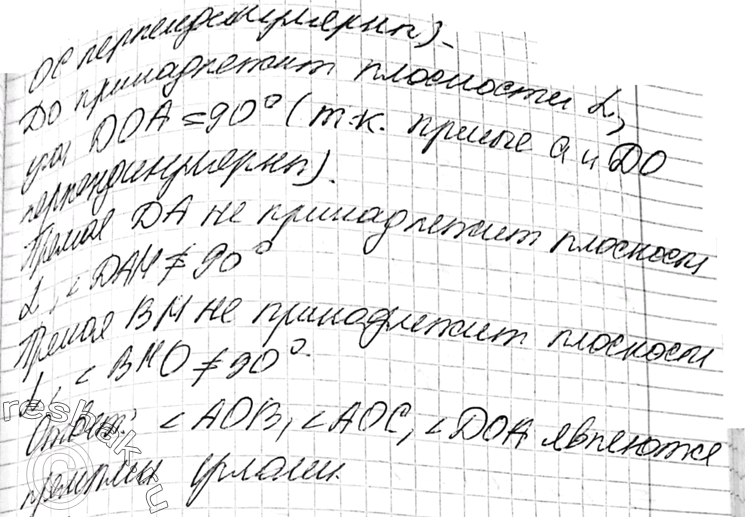 ОС перпендикулярны).
DO принадлежит плоскости α,
угол DOA = 90° (т.к. прямые a и DO
перпендикулярны).
Прямая DA не принадлежит плоскости
α, ∠DAM ≠ 90°
Прямая BM не принадлежит плоскости
α, ∠BMO ≠ 90°.
Ответ: ∠AOB, ∠AOC, ∠DOA являются
прямыми углами.
reshak.ru